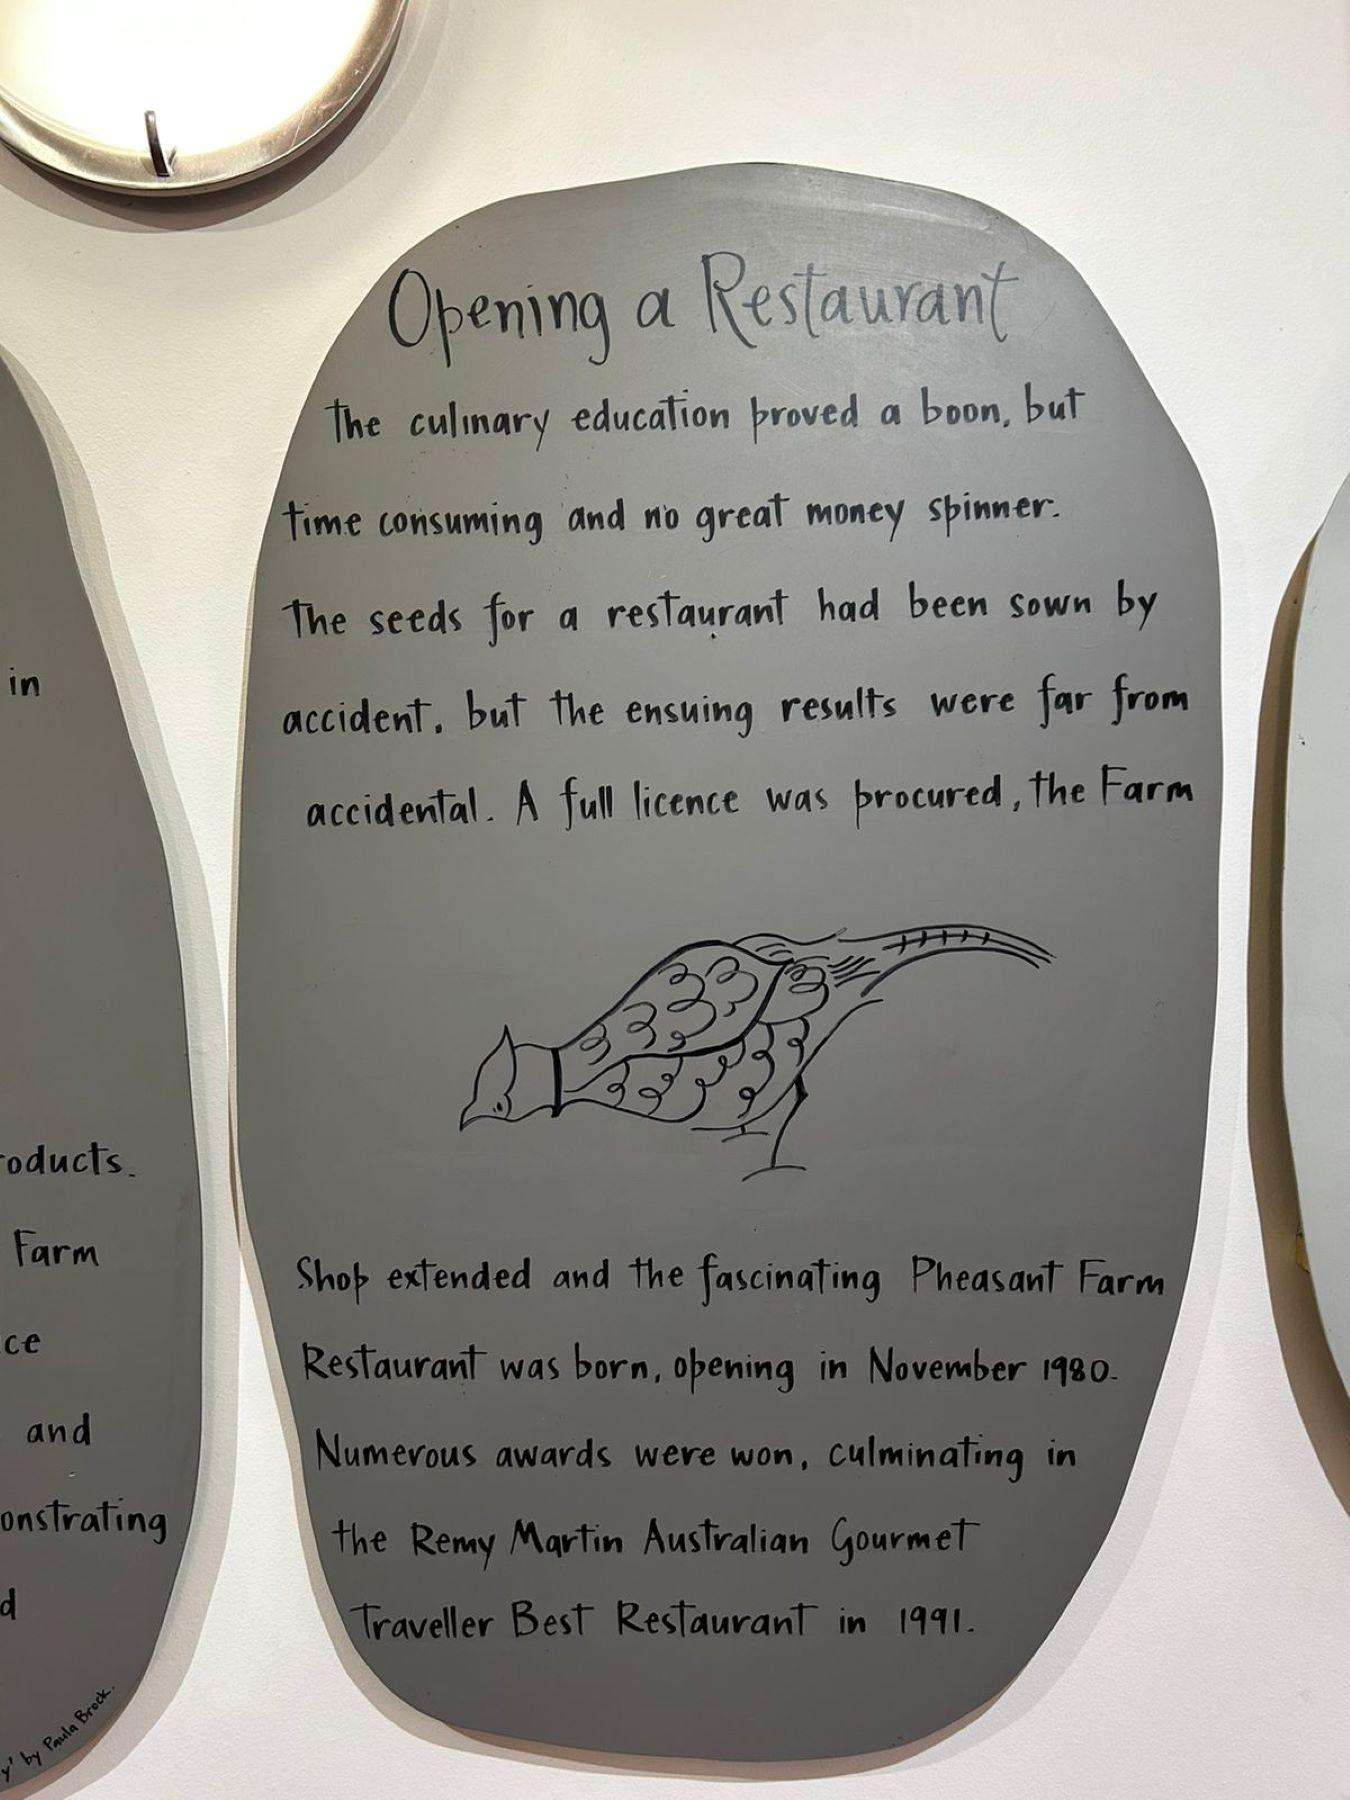 Opening a Restaurant
The culinary education proved a boon, but
time consuming and no great money spinner.
The seeds for a restaurant had been sown by
accident, but the ensuing results were far from
accidental. A full licence was procured, the Farm
Shop extended and the fascinating Pheasant Farm
Restaurant was born, opening in November 1980.
Numerous awards were won, culminating in
the Remy Martin Australian Gourmet
Traveller Best Restaurant in 1991.
in
oducts.
Farm
ce
and
onstrating
d
y' by Paula Brock.